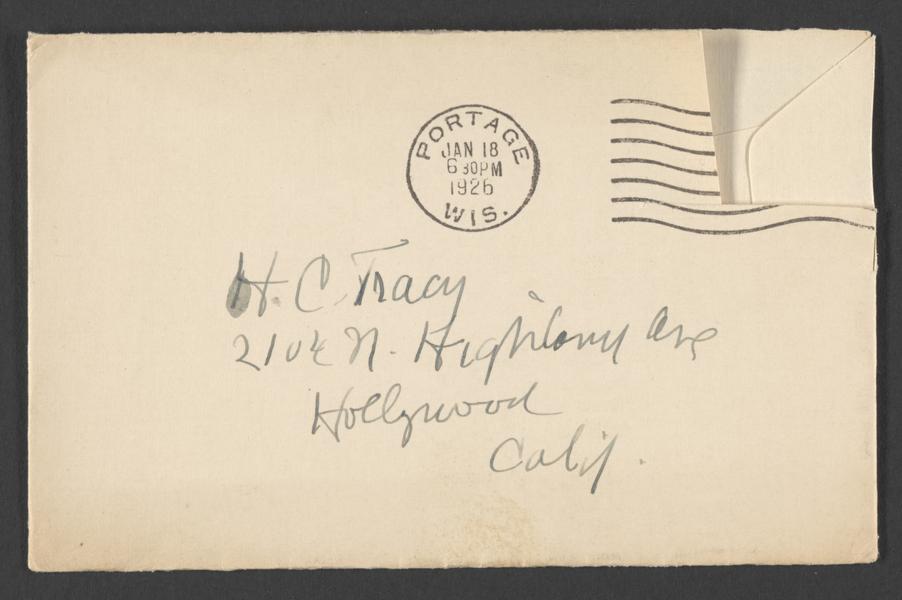 PORTAGE
JAN 18
6 30PM
1926
WIS.
H. C. Tracy
2104 N. Highland Ave
Hollywood
Calif.